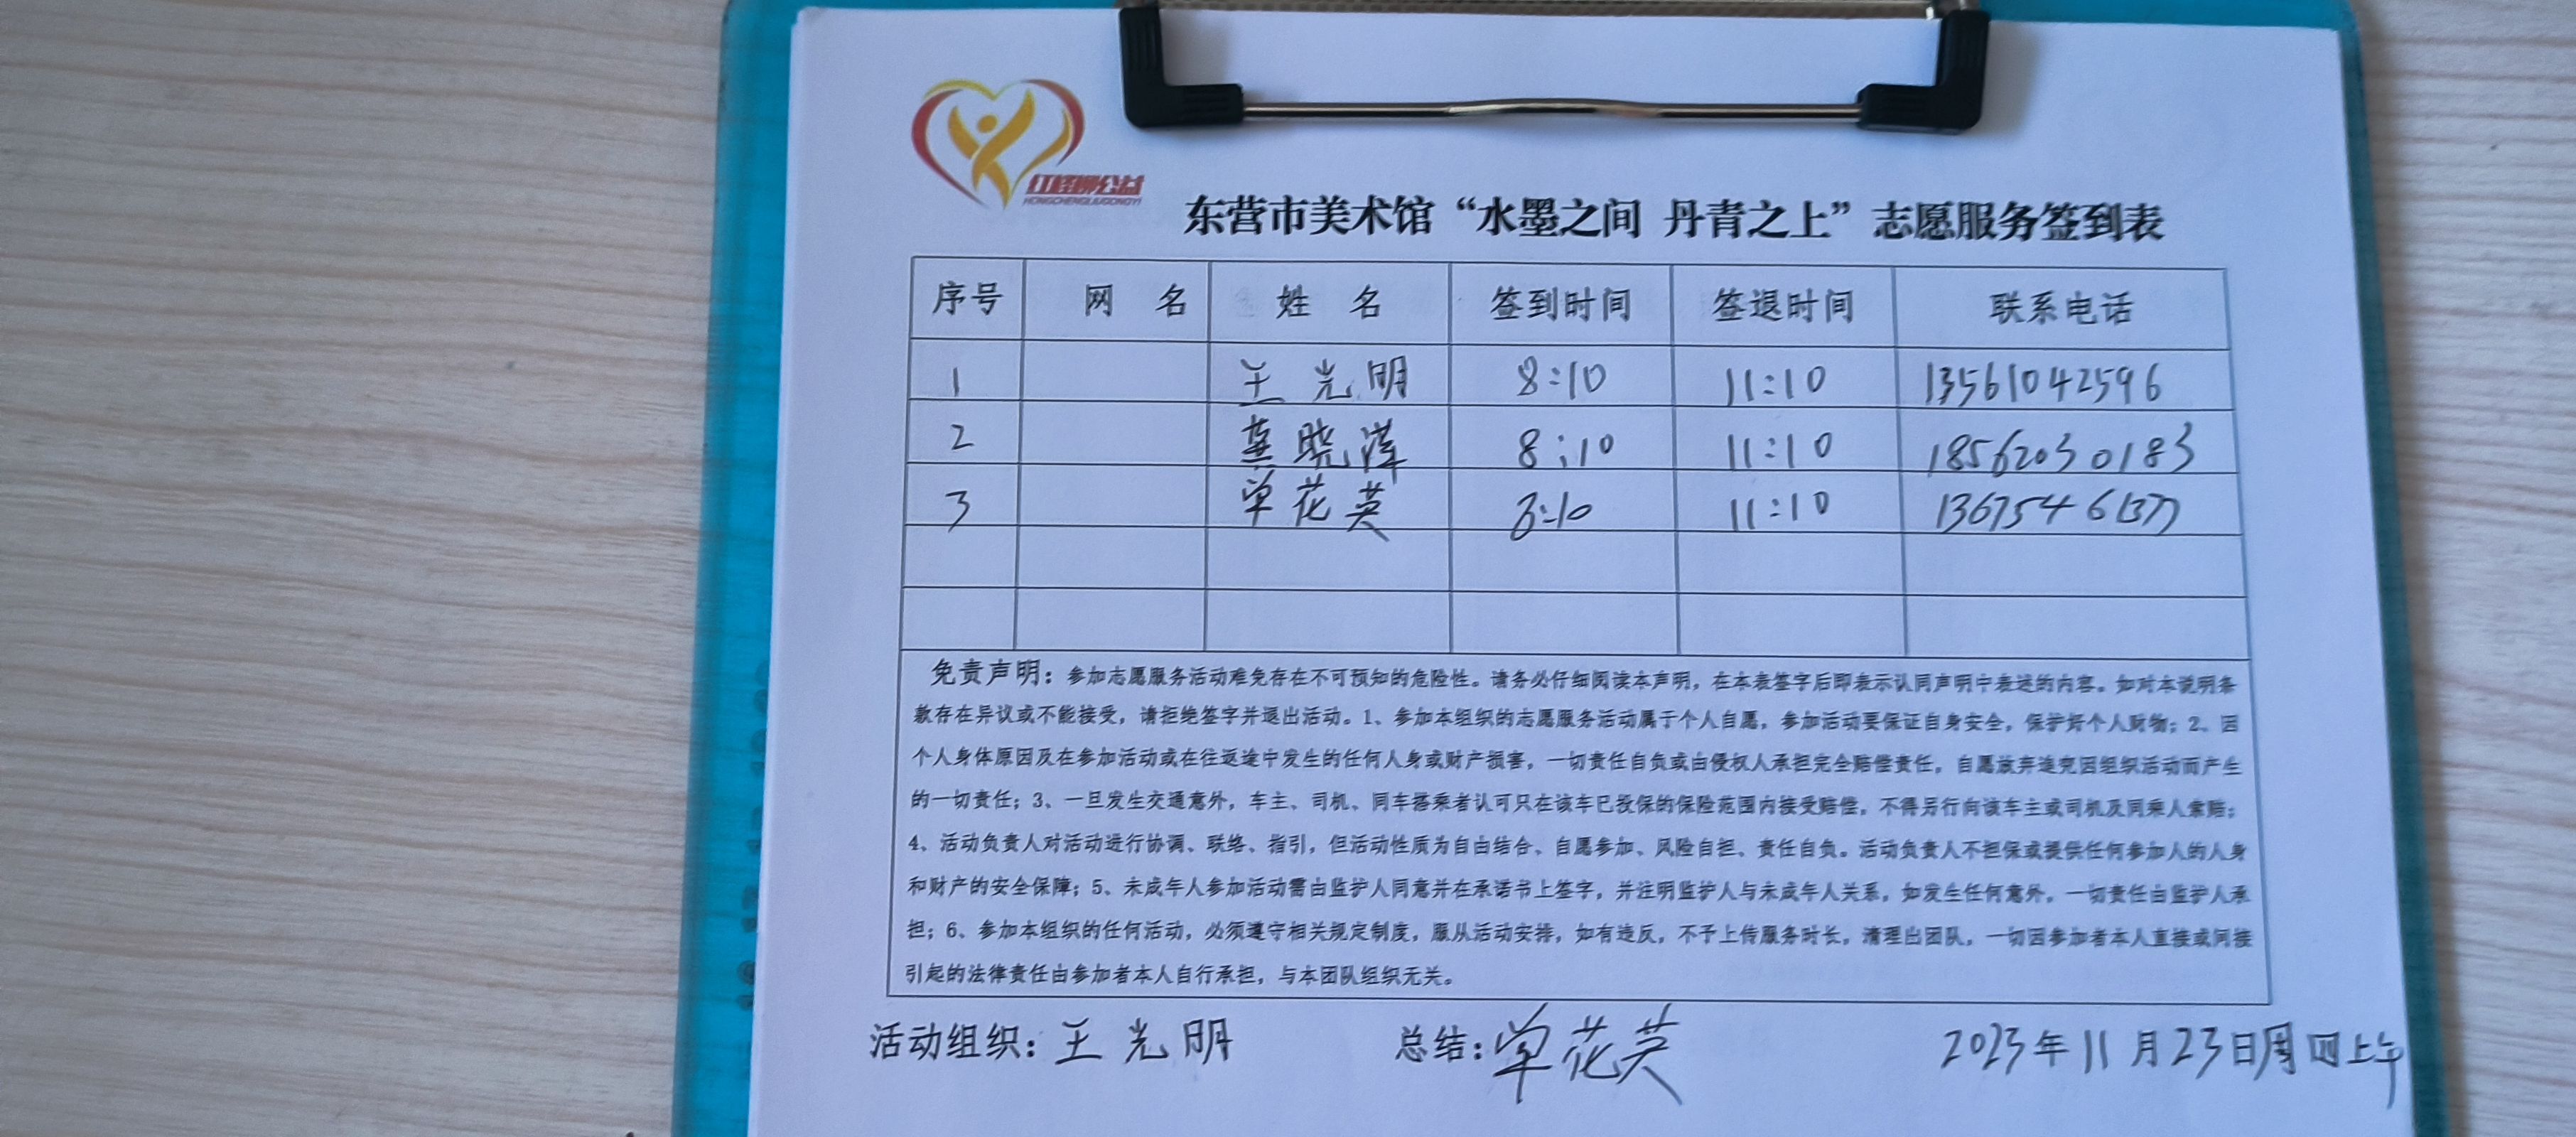 红柽柳公益
HONGCHENGLIUGONGYI
东营市美术馆“水墨之间 丹青之上”志愿服务签到表
序号 网 名 姓 名 签到时间 签退时间 联系电话
1 王光明 8:10 11:10 13561042596
2 晓萍 8:10 11:10 18562030183
3 单花英 8:10 11:10 13675461377
免责声明：参加志愿服务活动难免存在不可预知的危险性。请务必仔细阅读本声明，在本表签字后即表示认同声明中表述的内容。如对本说明条
款存在异议或不能接受，请拒绝签字并退出活动。1、参加本组织的志愿服务活动属于个人自愿，参加活动要保证自身安全，保护好个人财物；2、因
个人身体原因及在参加活动或在往返途中发生的任何人身或财产损害，一切责任自负或由侵权人承担完全赔偿责任，自愿放弃追究因组织活动而产生
的一切责任；3、一旦发生交通意外，车主、司机、同车搭乘者认可只在该车已投保的保险范围内接受赔偿，不得另行向该车主或司机及同乘人索赔；
4、活动负责人对活动进行协调、联络、指引，但活动性质为自由结合、自愿参加、风险自担、责任自负。活动负责人不担保或提供任何参加人的人身
和财产的安全保障；5、未成年人参加活动需由监护人同意并在承诺书上签字，并注明监护人与未成年人关系，如发生任何意外，一切责任由监护人承
担；6、参加本组织的任何活动，必须遵守相关规定制度，服从活动安排，如有违反，不予上传服务时长，清理出团队，一切因参加者本人直接或间接
引起的法律责任由参加者本人自行承担，与本团队组织无关。
活动组织：王光明 总结：单花英 2023年11月23日周四上午